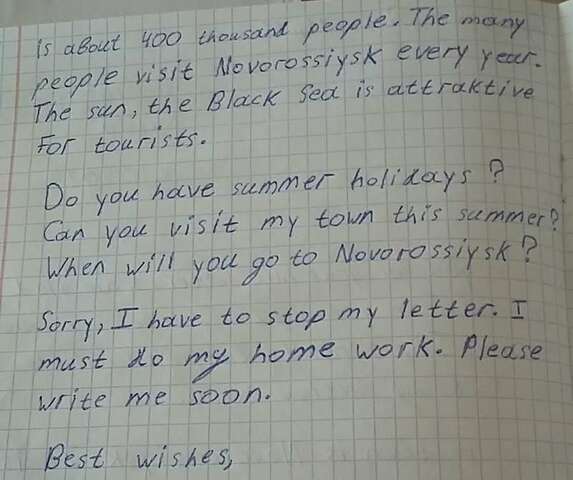 is about 400 thousand people. The many
people visit Novorossiysk every year.
The sun, the Black Sea is attraktive
for tourists.
Do you have summer holidays?
Can you visit my town this summer?
When will you go to Novorossiysk?
Sorry, I have to stop my letter. I
must do my home work. Please
write me soon.
Best wishes,